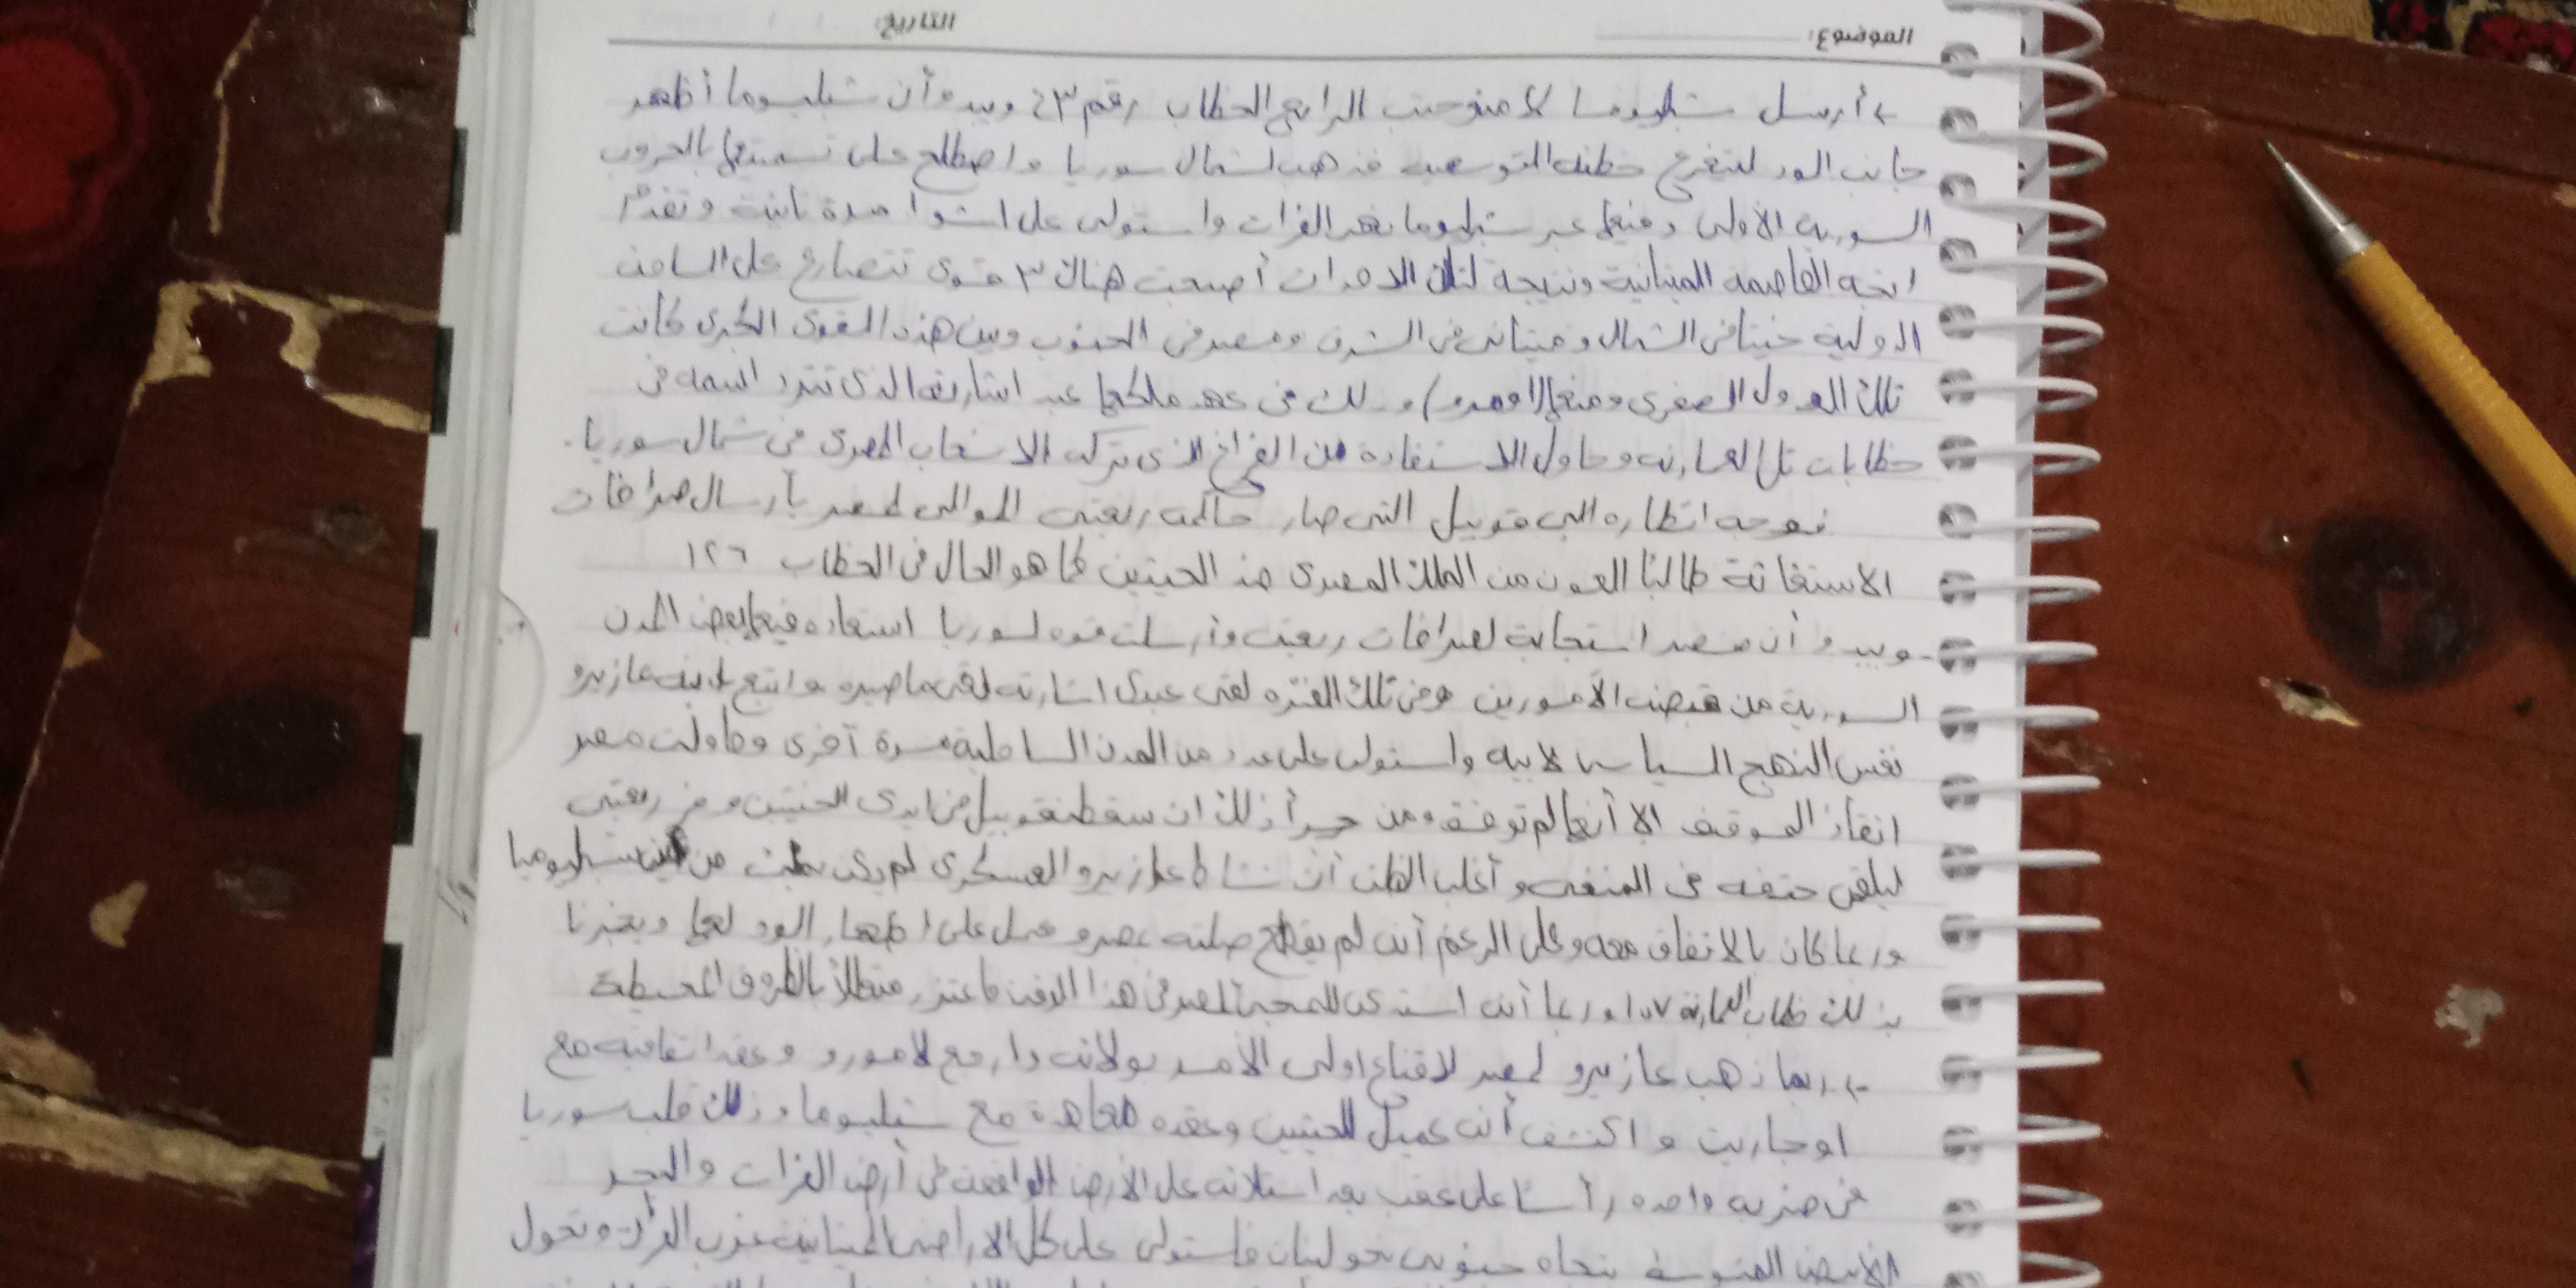 الموضوع: التاريخ:
أرسل شبليوما لامنوحتب الرابع الخطاب رقم ٤٣ ويبدو أن شبليوما أظهر
جانب الود ليتفرغ خطته التوسعيه فذهب لشمال سوريا واصطلح على تسميتها بالحروب
السوريه الأولى وفيها عبر شبليوما نهر الفرات واستولى على اشوا مرة ثانية وتقدم
اتجه العاصمه الميتانية ونتيجة لتلك الاحداث أصبحت هناك ٣ قوى تتصارع على الساحه
الدولية خيتا فى الشمال وميتانى فى الشرق ومصر فى الجنوب وبين هذه القوى الكبرى كانت
تلك الدول الصغرى ومنها (امورو) وذلك فى عهد ملكها عبد اشارته الذى تردد اسمه فى
خطابات تل العمارنه وحاول الاستفادة من الفراغ الذى تركه الانسحاب المصرى فى شمال سوريا.
فوجه انظاره الى قوبيل التى صار حاكمه ربعتى الموالى لمصر بأرسال صراخات
الاستغاثة طالبًا العون من الملك المصرى ضد الحيثيين كما هو الحال فى الخطاب ١٢٦
- ويبدو أن مصر استجابة لصراخات ربعتى وأرسلت قوه لسوريا استعاده فيها بعض المدن
السورية من قبضه الأموريين وفى تلك الفتره لقى عبدى اشارته لقى مصيره واتبع ابنه عازيرو
نفس النهج السياسى لابيه واستولى على عدد من المدن الساحلية مرة آخرى وحاولت مصر
انقاذ الموقف الا أنها لم توفق ومن جرأ ذلك ان سقطت قوبيل فى ايدى الحيثيين وفر ربعتى
ليلقى حتفه فى المنفى وأغلب الظن أن نشاط عازيرو العسكرى لم يكن من شبليوما
وربما كان بالاتفاق معه وعلى الرغم أنه لم يقطع صلته بمصر وعمل على اظهار الود لها ويخبرنا
بذلك خطاب العمارنة ١٥٧ وربما أنه استدعى للمجئ لمصر فى هذا الوقت فاعتذر متعللاً بالظروف المحيطة
ربما ذهب عازيرو لمصر لاقناع اولى الأمر بولائه وارجع لامورو وعقد اتفاقيه مع
اوجاريت واكتشف أنه عميل للحيثيين وعقده معاهدة مع شبليوما وذلك قلب سوريا
فى ضربه واحده رأسًا على عقب بعد استلائه على الأرض الواقعه فى أرض الفرات والبحر
الأبيض المتوسط بتجاه جنوبى نحو لبنان فاستولى على كل الاراضى الميتانيه غرب الفرات وتحول